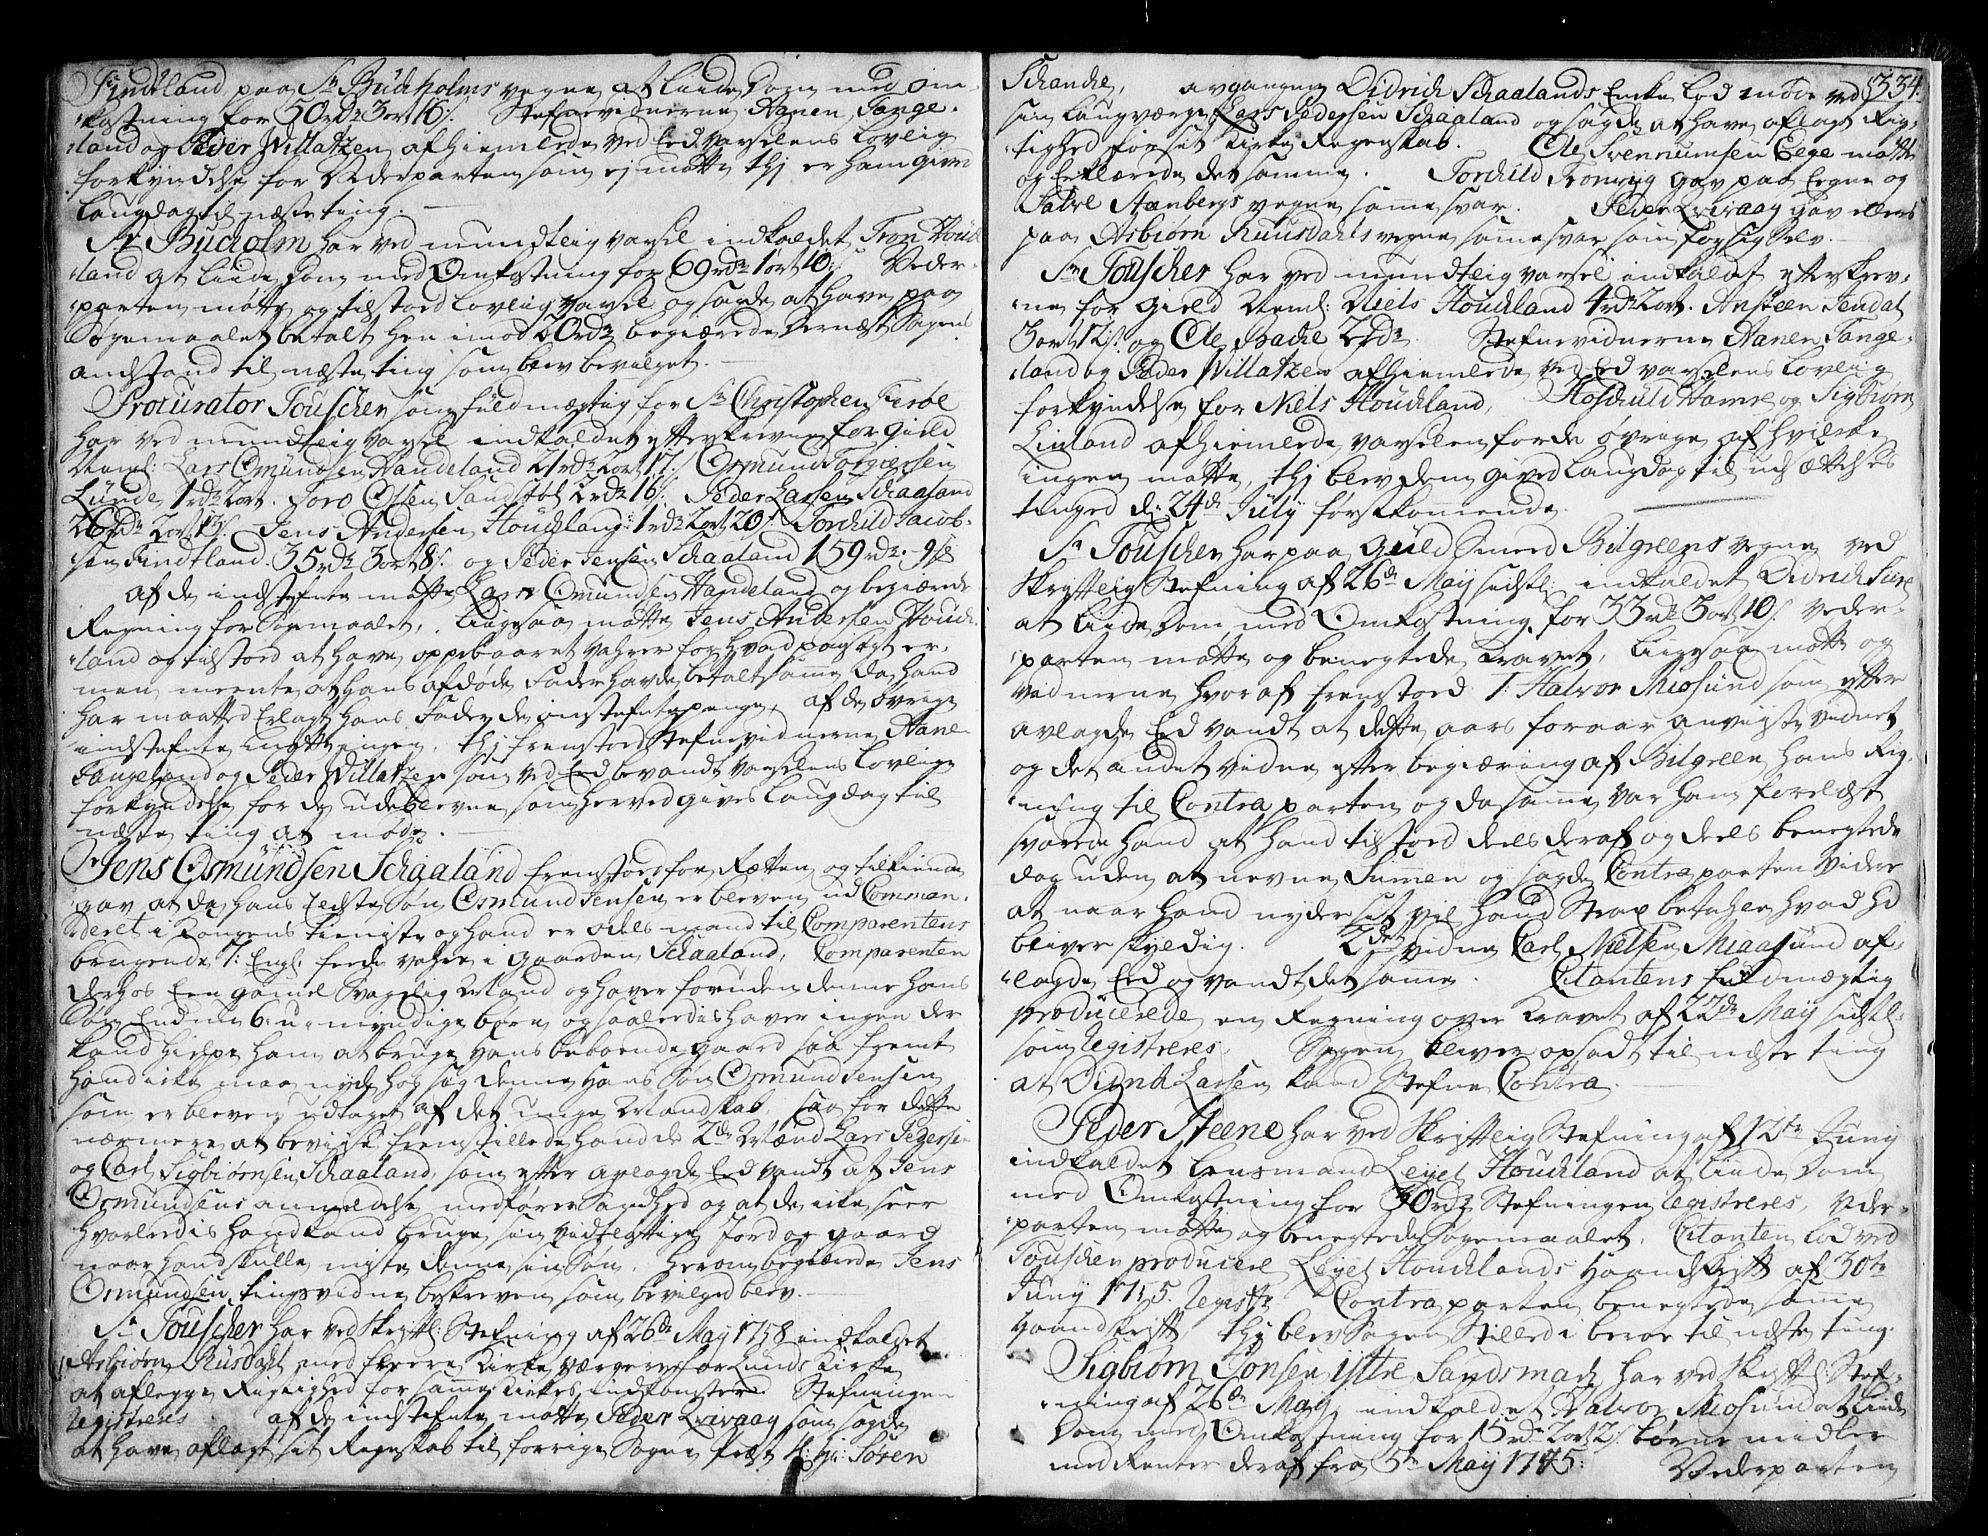 Findland paa Sr. Buchholms vegne at liide Dom med Om-
kostning for 50 rdr 3 ort 16 s. Stefnevidnerne Hanen Tange-
land og Peder Willatzen afhiemlede ved Eed varselens lovlig
forkyndelse for Vederparten som ej mötte thj er ham given
Laugdag til næste ting.
Sr. Bucholm har ved mundtlig varsel indkaldet Tron Houck
land at liide Dom med Omkostning for 69 rdr 1 ort 10 s. Veder-
parten mötte og tilstoed lovlig varsel og sagde at have paa
Søgemaalet betalt hen imod 20 rdr begiærede dernæst Sagens
anstand til næste ting som blev bevilget.
Procurator Touscher som fuldmægtig for Sr. Christopher Kirbe
har ved mundtlig varsel indkaldet efterskrevne for gield
Neml: Lars Omundsen Handeland 21 rdr 2 ort 17 s. Osmund Torgersen
Lunde 1 rdr 2 ort. Tord Olsen Sandstöl 2 rdr 16 s. Peder Larsen Schaaland
26 rdr 2 ort 13 s. Jens Andersen Houckland 1 rdr 2 ort 20 s. Torchild Jacob-
sen Findtland 35 rdr 3 ort 8 s. og Peder Jensen Schaaland 159 rdr - 9 s
af de indstefnte mötte Lars Omundsen Handeland og begiærede
Regning for Søgemaalet, liigesaa mötte Jens Andersen Houck
land og tilstoed at have oppebaaret vahrer for hvad paasagt er,
men meente at hans afdöde Fader havde betalt samme da hand
har maatted Erlagt hans Fader de indstefnte penge, af de övrige
indstefnte mötte ingen, thj fremstoed Stefnevidnerne Hane
Tangeland og Peder Willatzen som ved Eed bevandt varselens lovlige
forkyndelse for de udeblevne som herved gives laugdag til
næste ting at møde.
Jens Osmundsen Schaaland fremstoed for Retten og tilkiende
gav at da hans Eldste Søn Osmund Jensen er bleven ud Comman-
deret i Kongens tieniste og hand er odels mand til Comparentens
brugende 7: Engl. feede vahre i gaarden Schaaland, Comparenten
derhos Een gamel Svagelig Mand og haver foruden denne hans
Søn Endnu 6 u-myndige börn og saaledis haver ingen der
kand hielpe ham at bruge hans beboende gaard saa fremt
hand icke maa nyde hos sig denne hans Søn Osmund Jensen
som er bleven udtaget af det unge Mandskab, saa for dette
nærmere at bevise fremstillede hand de 2de Mænd Lars Pedersen
og Carl Sigbiørnsen Schaaland, som efter aflagde Eed vandt at Jens
Osmundsens anmeldelse medförer Sandhed og at de icke seer
hvorledis hand kand bruge sin vidtløftige Jord og gaard
naar hand skulle miste denne sin Søn. Herom begiærede Jens
Osmundsen tingsvidne beskreven som bevilged blev.
Sr. Touscher har ved skriftl: Stefning af 26de May 1758 indkaldet
Asbiørn Rusdahl med fleere Kirke værgere for Lunds Kirke
at aflegge Rigtighed for samme Kirkes indkomster. Stefningen
Registreres. af de indstefnte mötte Peder Qvivaag som sagde
at have aflagt sit Regnskab til forrige Sogne Præst Hr: Søren
334
Schanche, avgangne Didrich Schaalands Enke lod møde ved
sin Laugværge Lars Pedersen Schaaland og sagde at have aflagt Rig-
tighed for sit Kirke Regenskab. Ole Svennumsen Eege mötte
og Erklærede det samme. Torchild Tronvig gav paa Eegne og
Salve Stanbergs vegne samme svar. Peder Qvivaag gav ellers
paa Asbiørn Ruusdahls vegne samme svar som for sig Selv.
Sr. Touscher har ved mundtlig varsel indkaldt efterskrev-
ne for gield Neml: Niels Houckland 4 rdr 2 ort. Ansteen Sendal
3 ort 12 s. og Ole Bache 2 rdr. Stefnevidnerne Hanen Tange-
land og Peder Willatzen afhiemlede ved Eed varselens lovlig
forkyndelse for Niels Houckland, Hoschuld Hamre og Sigbiørn
Linland afhiemlede varselen for de övrige af hvilcke
ingen mötte, thj blev dem gived Laugdag til udsættelses
tinged d: 24de July førstkomende.
Sr. Touscher har paa Guld Smed Bilgreens vegne ved
skriftlig Stefning af 26de May sidstl: indkaldet Didrich Siire
at liide Dom med Omkostning for 33 rdr 3 ort 10 s. Veder-
parten mötte og benegtede Kravet, liigesaa mötte og
vidnerne hvoraf fremstoed 1: Halvor Miosund som efter
avlagde Eed vandt at dette aars foraar anviste vidnet
og det andet vidne efter begiæring af Bilgreen hans Reg-
ning til Contra parten og da samme var ham forelæst
svarede hand at hand tilstoed deels deraf og deels benegtede
dog uden at nevne Summen og sagde Contra parten videre
at naar hand nyder sit vil hand Strax betahle hvad hd
bliver skyldig. 2det vidne Carl Nielsen Miaasund af-
lagde Eed og vandt det samme. Citantens fuldmægtig
producerede en Regning over Kravet af 22de May sidstl:
som Registreres. Sagen bliver opsadt til næste ting
at Didrich Larsen kand Stefne Contra.
Peder Steene har ved skriftlig Stefning af 12te Juny
indkaldet Lensmand Leyel Houckland at liide Dom
med Omkostning for 30 rdr Stefningen Registreres, Veder-
parten mötte og benegtede Søgemaalet. Citanten lod ved
Touscher producere Leyel Houcklands Haandskrift af 30te
Juny 1715. Registr. Contra parten benegtede samme
Haandskrift thj blev Sagen Stilled i beroe til næste ting.
Sigbiørn Tonsen ystre Sandsmark har ved skriftl: Stef-
ning af 26de May indkaldet Halvor Miosund at liide
Dom med Omkostning for 15 rdr 2 ort 2 s. börne midler
med Renter deraf fra 5te May 1745: Vederparten